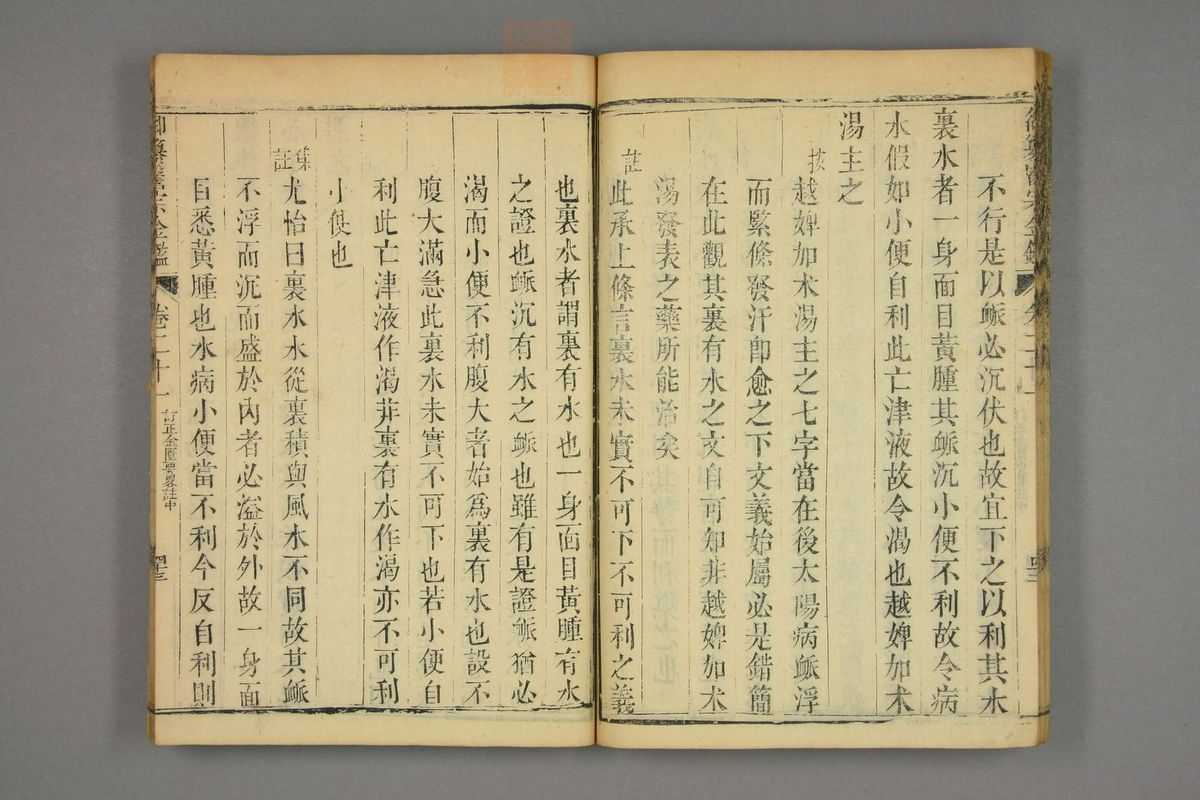 不行是以䘑必沉伏也故宜下之以利其水
裏水者一身面目黃腫其䘑沉小便不利故令病
水假如小便自利此亡津液故令渴也越婢加术
湯主之
按越婢加术湯主之七字當在後太陽病䘑浮
而緊條發汗卽愈之下文義始屬必是錯簡
在此觀其裏有水之文自可知非越婢加术
湯發表之藥所能治矣
註此承上條言裏水未實不可下不可利之義
也裏水者謂裏有水也一身面目黃腫有水
之證也䘑沉有水之䘑也雖有是證䘑猶必
渴而小便不利腹大者始爲裏有水也設不
腹大滿急此裏水未實不可下也若小便自
利此亡津液作渴非裏有水作渴亦不可利
小便也
集註尤怡曰裏水水從裏積與風水不同故其䘑
不浮而沉而盛於內者必溢於外故一身面
目悉黃腫也水病小便當不利今反自利則
御纂醫宗金鑑
卷二十一
訂正金匱要畧註中